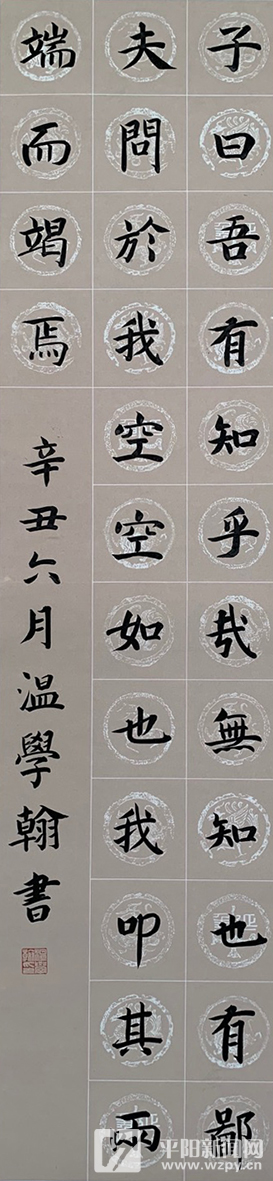 子曰吾有知乎哉無知也有鄙
夫問於我空空如也我叩其兩
端而竭焉
辛丑六月温學翰書
平阳新闻网
www.wzpy.cn